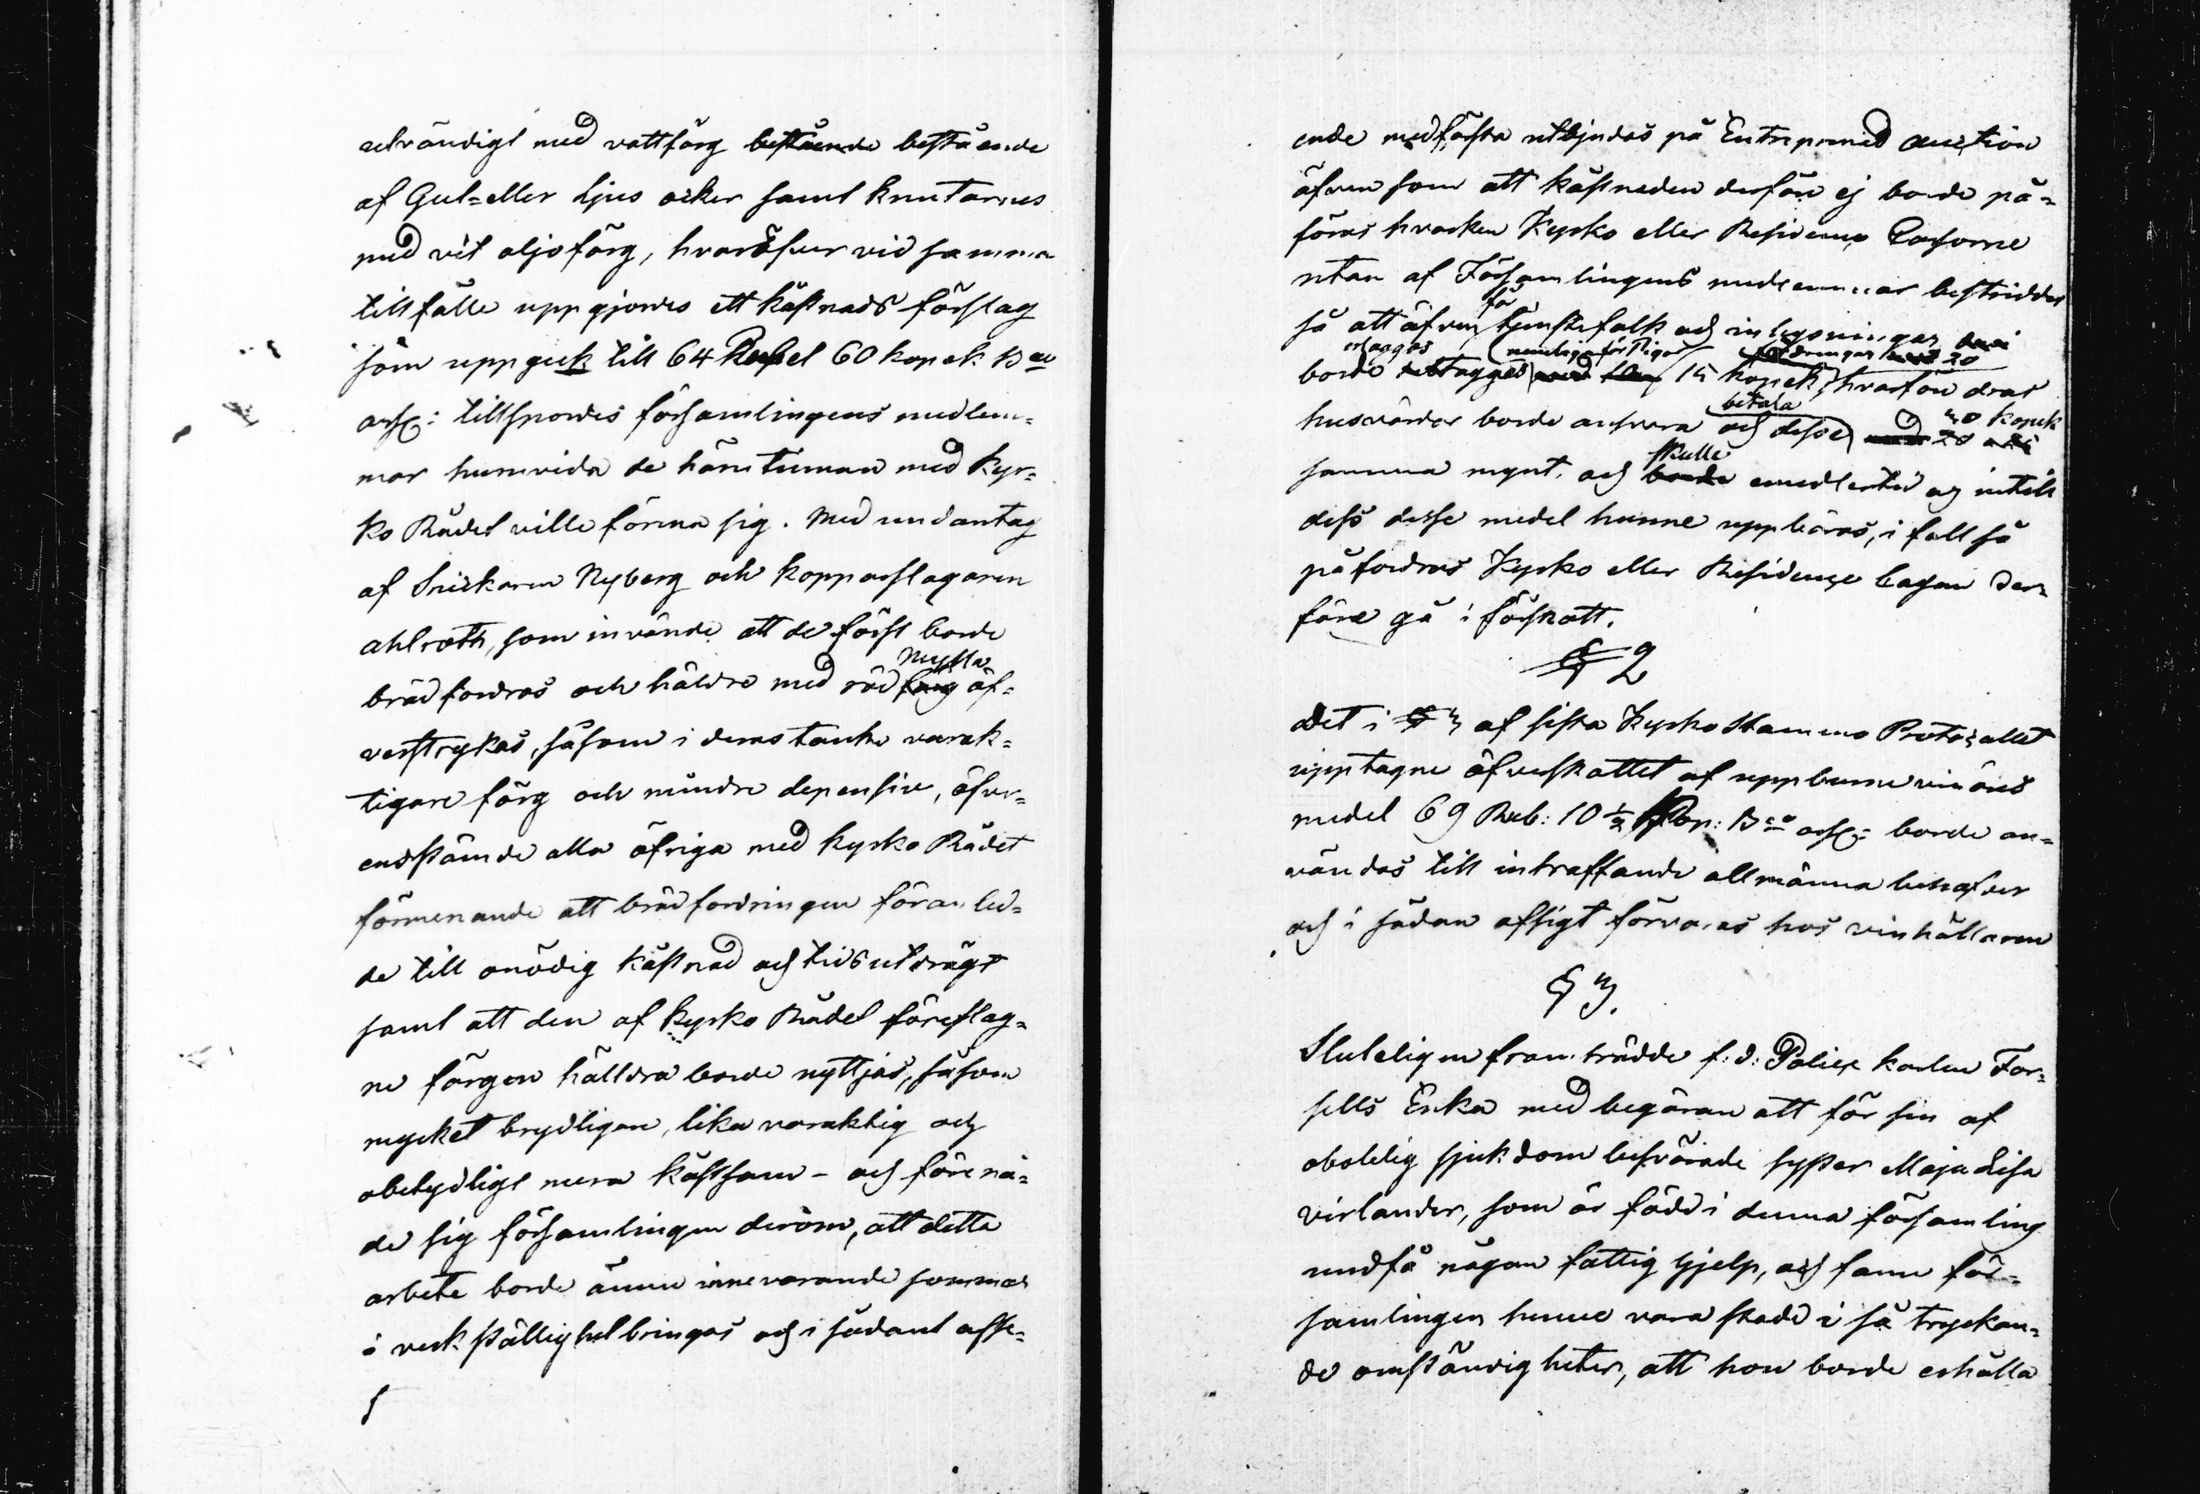 utvändigt med vattfärg bestående bestående
af Gul= eller Ljus ocker samt knutarnes
med vit oljofärg, hvaröfver vid samma
tillfälle uppgjordes ett kåstnads förslag
som uppgick till 64 Rubel 60 kopek B:co
ass: tillspordes församlingens medlem=
mar hurnvida de häruttinnan med Kyr=
ko Rådet ville förena sig. Med undantag
af Snickaren Nyberg och kopparslagaren
Ahlroth, som invände att de först borde
brädfordras och häldre med röd Mylla äf=
verstrykas, såsom i deras tanke varak=
tigare färg och mindre depensive, öfver=
ensstämde alla öfriga med Kyrko Rådet
förmenande att brädfordringen föranled=
de till onödig kåstnad och tidsutdrägt
samt att den af Kyrko Rådet föreslag=
ne färgen hälldra borde nyttjas, såsom
mycket brydligare, lika varaktig och
obetydligt mera kåstsam – och förenä=
de sig församlingen derom, att detta
arbete borde ännu innevarande sommar
i verkställighet bringas och i sådant affse=
ende medförsta utbjudas på Entreprenad auction
äfvensom att kåstnaden derföre ej borde på=
föras hvarken Kyrko eller Residence Cassorne
utan af Församlingens medlemmar bestriddes
så att äfven för tjenstefolk och inhysningar
borde erläggas nemligen för Pigor 15 kopek, drengar 20 hvarföre deras
husvärdar borde ansvara och desse betala 40 kopek
samma mynt. och skulle emedlertid och intill
dess desse medel hunne uppbäras, i fall så
påfordras Kyrko eller Residence Cassan der=
före gå i förskott.
§ 2
Det i § 3 af sista Kyrko Stammo Protocollet
upptagne öfverskottet af uppburne vinöres
medel 69 Rub: 10 ½ Kop: B:co ass: borde an=
vändas till intraffande allmänna behofver
och i sådan afsigt förvaras hos vinhållaren
§ 3.
Sluteligen framträdde f: d: Police karlen For=
sells Enka med begäran att för sin af
obotelig sjukdom besvärade syster Maja Lisa
Virlander, som är född i denna församling
undfå någon fattig hjelp, och fann för=
samlingen henne vara stadd i så tryckan=
de omständigheter, att hon borde erhålla